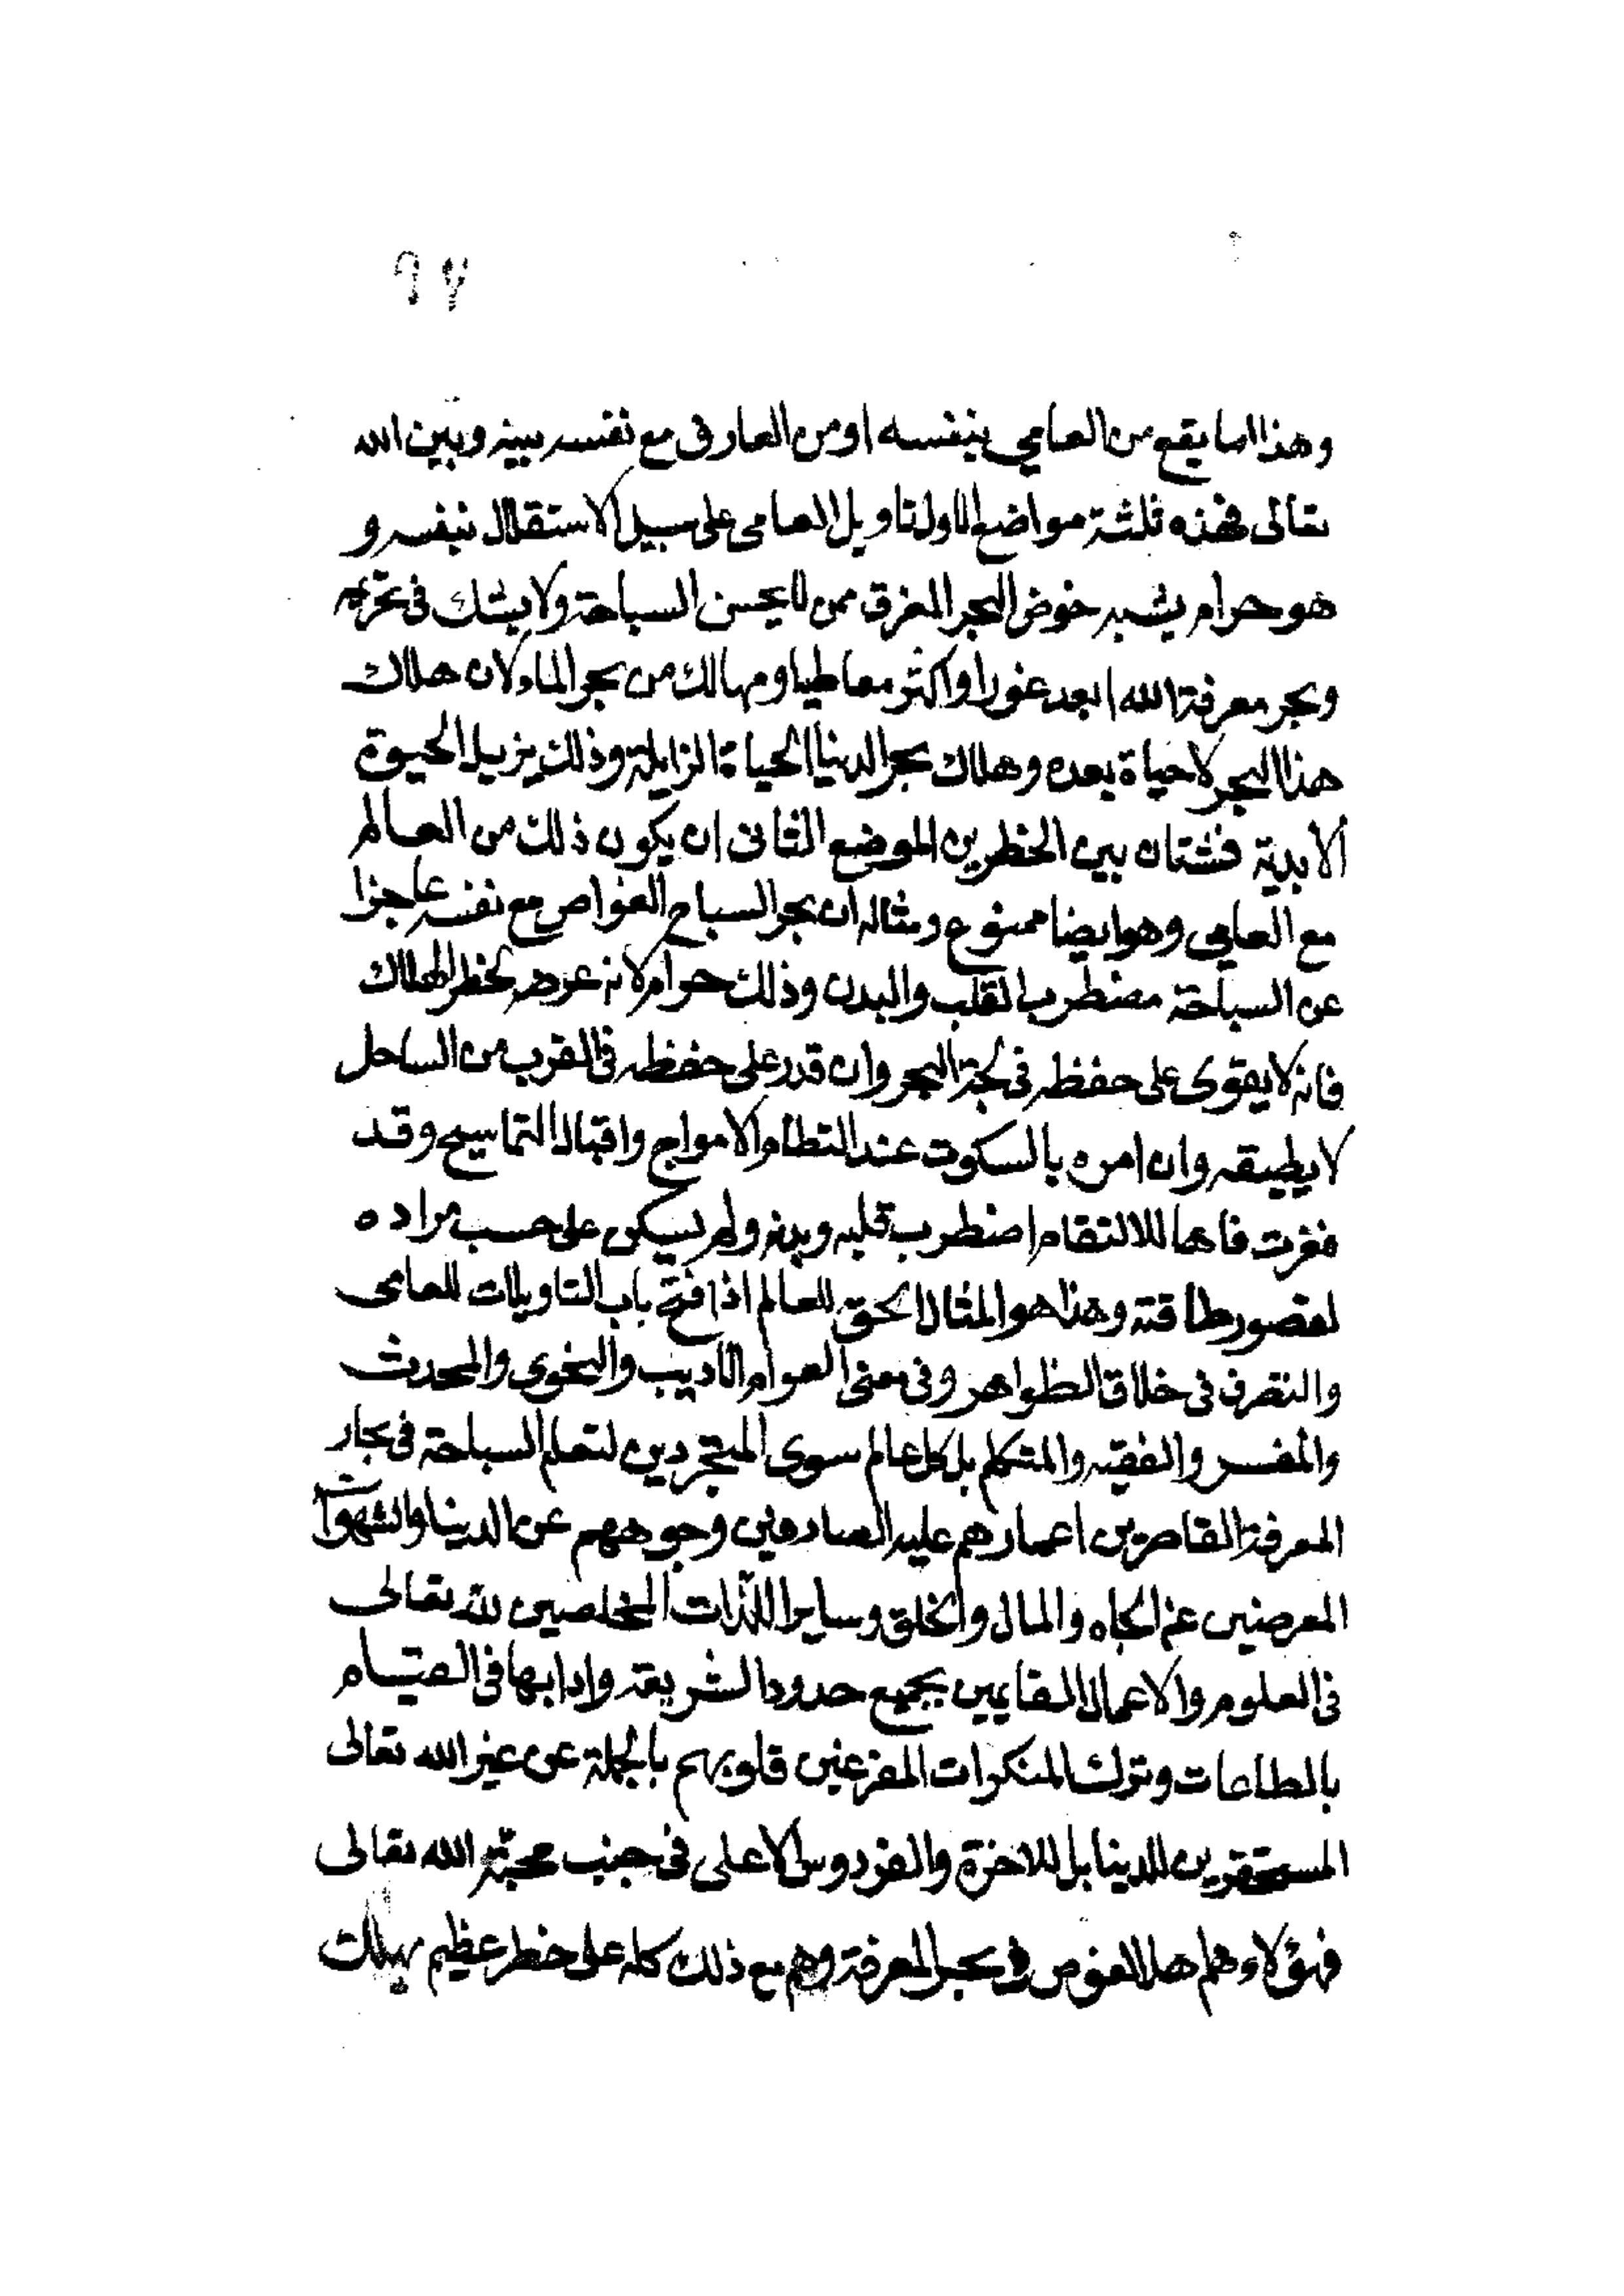 ٩٧
وهذا اما يقع من العامي بنفسه او من العارف مع نفسه بينه وبين الله
تعالى فهذه ثلثة مواضع الاول تاويل العامى على سبيل الاستقلال بنفسه و
هو حرام يشبه خوض البحر المغرق ممن لا يحسن السباحة ولا يشك فى تحريمه
وبحر معرفة الله ابعد غورا واكثر معاطبا ومهالك من بحر الماء لان هلاك
هذا البحر لا حياة بعده وهلاك بحر الدنيا الحياة الزايلة وذلك يزيل الحيوة
الابدية فشتان بين الخطرين الموضع الثانى ان يكون ذلك من العالم
مع العامي وهو ايضا ممنوع ومثاله ان يجر السباح الغواص مع نفسه عاجزا
عن السباحة مضطرب القلب والبدن وذلك حرام لانه عرضه لخطر الهلاك
فانه لا يقوى على حفظه فى لجة البحر وان قدر على حفظه فى القرب من الساحل
لا يطيقه وان امره بالسكوت عند التطام الامواج واقبال التماسيح وقد
فغرت فاها للالتقام اضطرب قلبه وبدنه ولم يسكن على حسب مراده
لقصور طاقته وهذا هو المثال الحق للعالم اذا فتح باب التاويلات للعامى
والتصرف فى خلاف الظواهر وفى معنى العوام الاديب والنحوى والمحدث
والمفسر والفقيه والمتكلم بل كل عالم سوى المتجردين لتعلم السباحة فى بحار
المعرفة القاصرين اعمارهم عليه الصارفين وجوههم عن الدينا والشهوات
المعرضين عن الجاه والمال والخلق وساير اللذات المخلصين لله تعالى
فى العلوم والاعمال القايمين بجميع حدود الشريعة وادابها فى القيام
بالطاعات وترك المنكرات المفرغين قلوبهم بالجملة عن غير الله تعالى
المستحقرين للدينا بل للاخرة والفردوس الاعلى فى جنب محبة الله تعالى
فهؤلاء هم اهل الغوص فى بحر المعرفة وهم مع ذلك كله على خطر عظيم يهلك